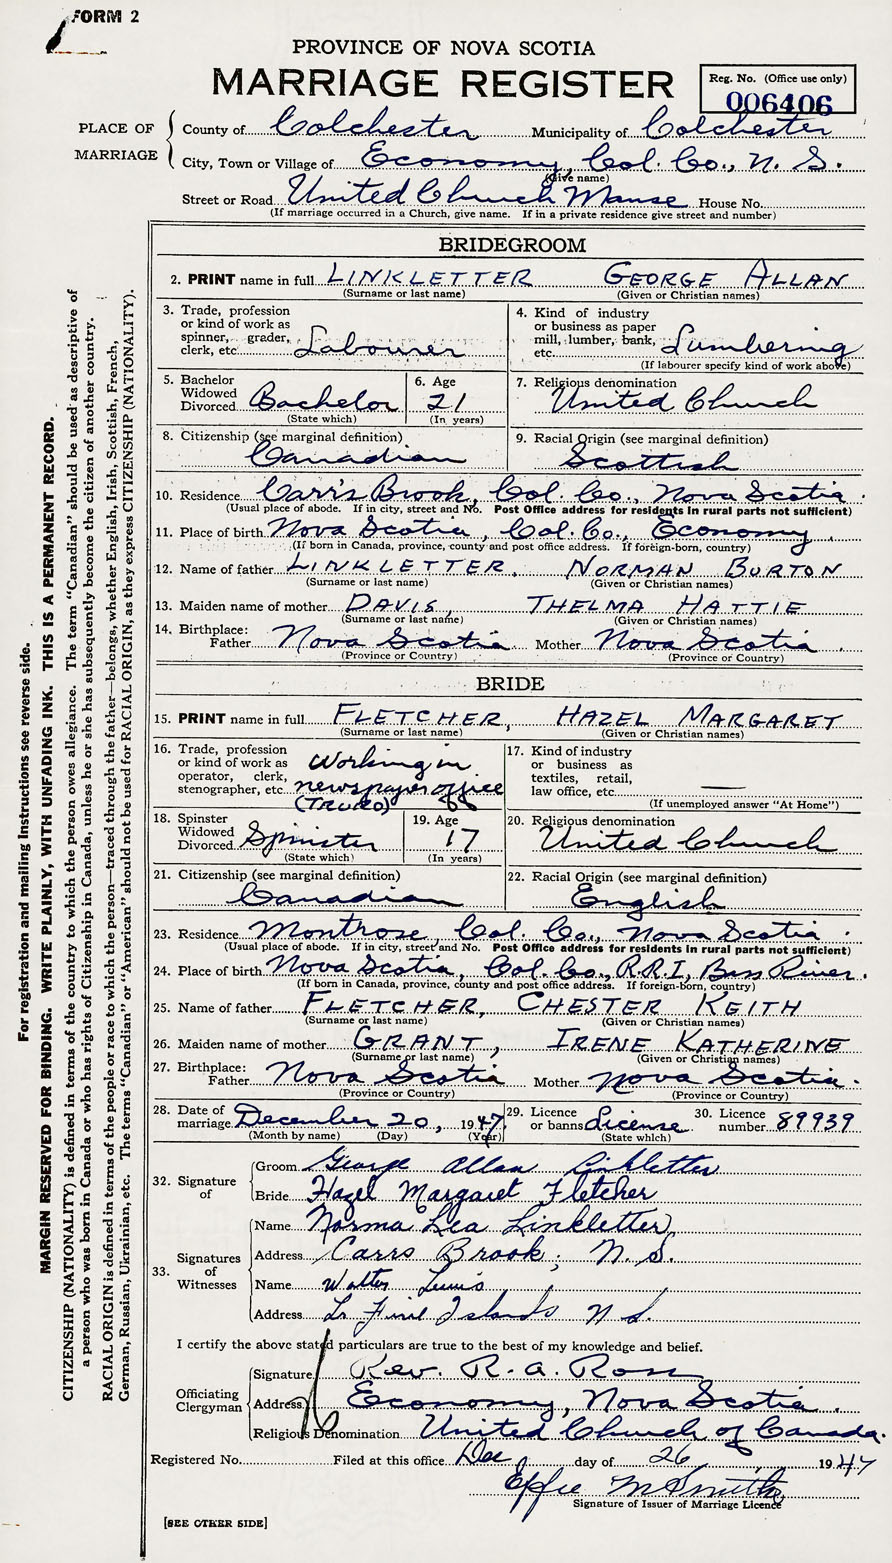 FORM 2
PROVINCE OF NOVA SCOTIA
MARRIAGE REGISTER
Reg. No. (Office use only)
006406
PLACE OF MARRIAGE
County of Colchester Municipality of Colchester
City, Town or Village of Economy, Col. Co., N. S.
(Give name)
Street or Road United Church Manse House No.
(If marriage occurred in a Church, give name. If in a private residence give street and number)
BRIDEGROOM
2. PRINT name in full LINKLETTER GEORGE ALLAN
(Surname or last name) (Given or Christian names)
3. Trade, profession or kind of work as spinner, grader, clerk, etc. Labourer
4. Kind of industry or business as paper mill, lumber, bank, etc. Lumbering
(If labourer specify kind of work above)
5. Bachelor Widowed Divorced Bachelor
(State which)
6. Age 21
(In years)
7. Religious denomination
United Church
8. Citizenship (see marginal definition)
Canadian
9. Racial Origin (see marginal definition)
Scottish
10. Residence Carr's Brook, Col. Co., Nova Scotia.
(Usual place of abode. If in city, street and No. Post Office address for residents in rural parts not sufficient)
11. Place of birth Nova Scotia, Col. Co., Economy.
(If born in Canada, province, county and post office address. If foreign-born, country)
12. Name of father LINKLETTER, NORMAN BURTON
(Surname or last name) (Given or Christian names)
13. Maiden name of mother DAVIS, THELMA HATTIE
(Surname or last name) (Given or Christian names)
14. Birthplace: Father Nova Scotia Mother Nova Scotia.
(Province or Country) (Province or Country)
BRIDE
15. PRINT name in full FLETCHER, HAZEL MARGARET
(Surname or last name) (Given or Christian names)
16. Trade, profession or kind of work as operator, clerk, stenographer, etc. Working in newspaper office (TRURO)
17. Kind of industry or business as textiles, retail, law office, etc. —
(If unemployed answer "At Home")
18. Spinster Widowed Divorced Spinster
(State which)
19. Age 17
(In years)
20. Religious denomination
United Church
21. Citizenship (see marginal definition)
Canadian
22. Racial Origin (see marginal definition)
English
23. Residence Montrose, Col. Co., Nova Scotia.
(Usual place of abode. If in city, street and No. Post Office address for residents in rural parts not sufficient)
24. Place of birth Nova Scotia, Col. Co., R.R.1, Bass River.
(If born in Canada, province, county and post office address. If foreign-born, country)
25. Name of father FLETCHER, CHESTER KEITH
(Surname or last name) (Given or Christian names)
26. Maiden name of mother GRANT, IRENE KATHERINE
(Surname or last name) (Given or Christian names)
27. Birthplace: Father Nova Scotia Mother Nova Scotia.
(Province or Country) (Province or Country)
28. Date of marriage December 20, 1947
(Month by name) (Day) (Year)
29. Licence or banns License
(State which)
30. Licence number 89939
32. Signature of
Groom George Allan Linkletter
Bride Hazel Margaret Fletcher
33. Signatures of Witnesses
Name Norma Lea Linkletter
Address Carrs Brook, N. S.
Name Walter Lewis
Address Islands N S.
I certify the above stated particulars are true to the best of my knowledge and belief.
Officiating Clergyman
Signature Rev. R. A. Ross
Address Economy, Nova Scotia.
Religious Denomination United Church of Canada.
Registered No. Filed at this office Dec day of 26 1947
Effie M Smith
Signature of Issuer of Marriage Licence
[SEE OTHER SIDE]
For registration and mailing instructions see reverse side.
MARGIN RESERVED FOR BINDING. WRITE PLAINLY, WITH UNFADING INK. THIS IS A PERMANENT RECORD.
CITIZENSHIP (NATIONALITY) is defined in terms of the country to which the person owes allegiance. The term "Canadian" should be used as descriptive of
a person who was born in Canada or who has rights of Citizenship in Canada, unless he or she has subsequently become the citizen of another country.
RACIAL ORIGIN is defined in terms of the people or race to which the person—traced through the father—belongs, whether English, Irish, Scottish, French,
German, Russian, Ukrainian, etc. The terms "Canadian" or "American" should not be used for RACIAL ORIGIN, as they express CITIZENSHIP (NATIONALITY).